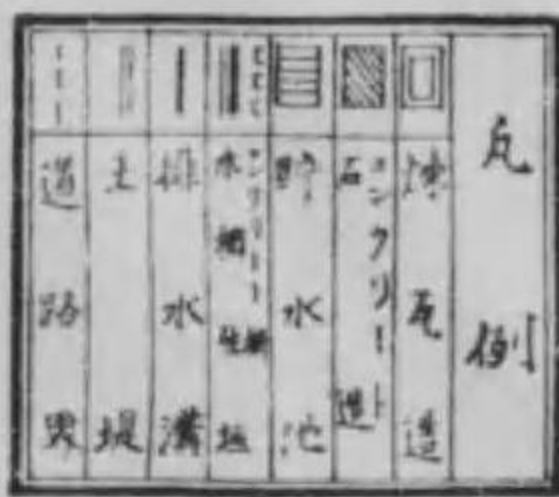 凡例
煉瓦造
コンクリート
石造
貯水池
コンクリート塀
木柵 生垣
排水溝
土堤
道路界